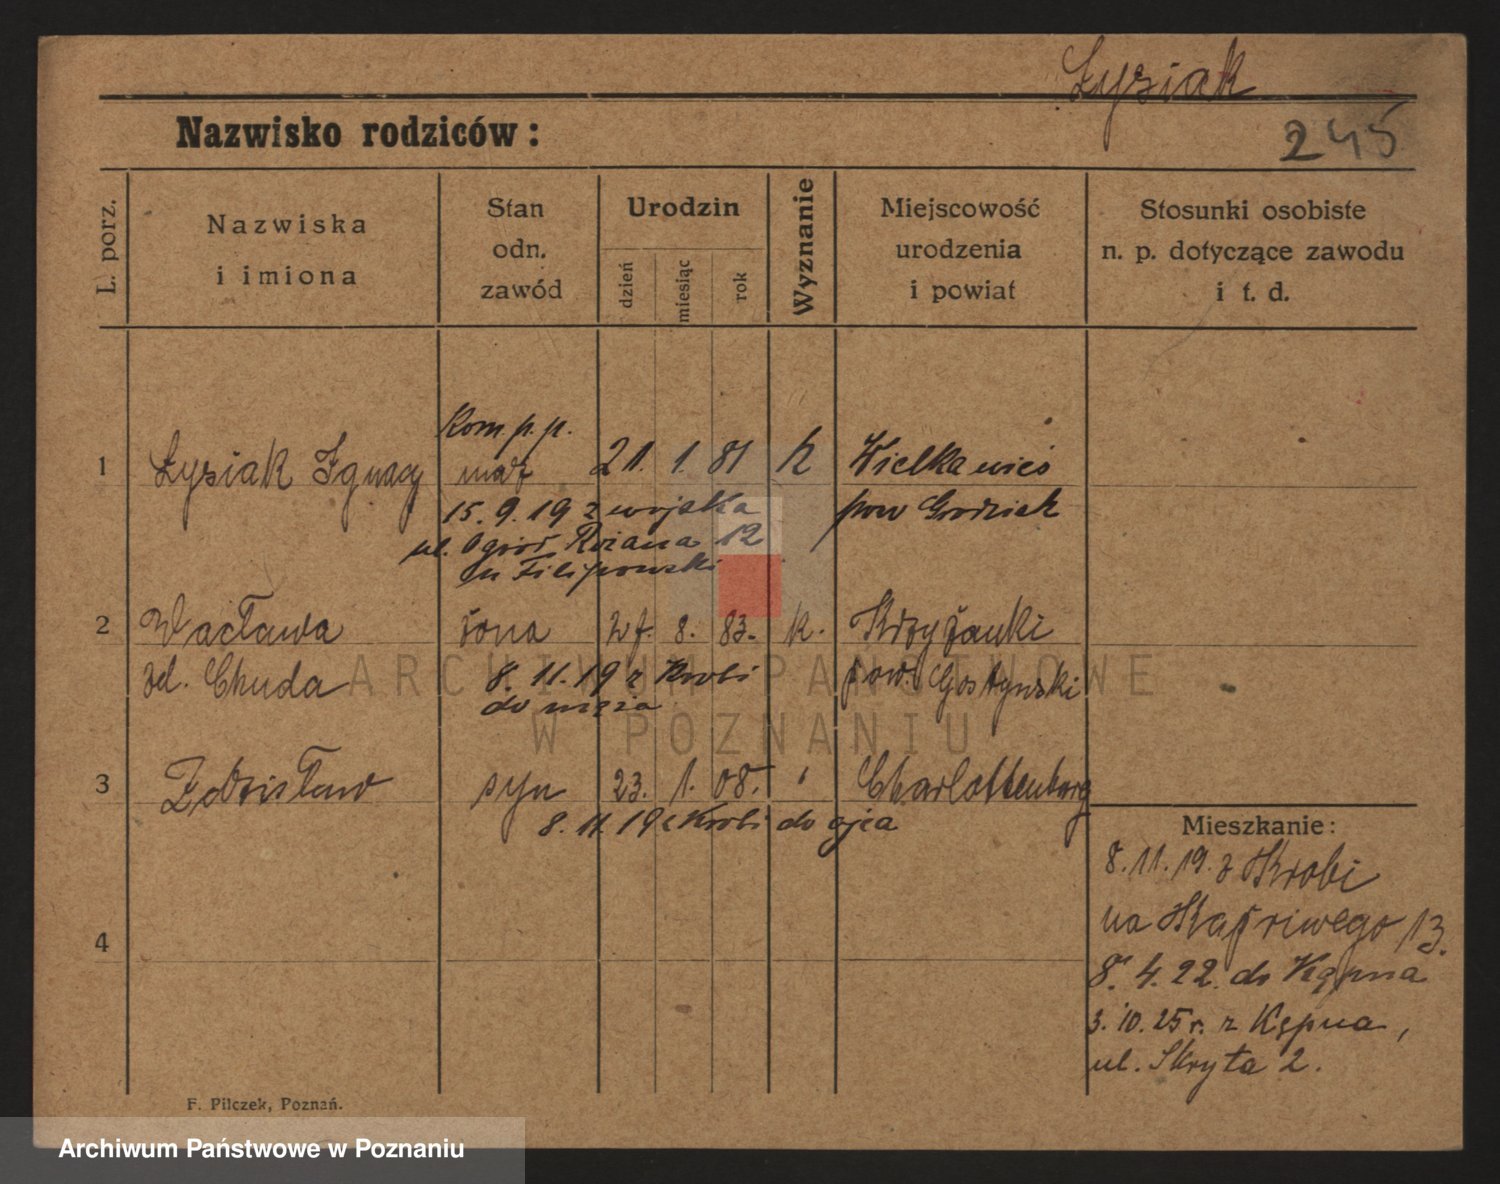 Łysiak
Nazwisko rodziców:
245
L. porz.
Nazwiska
i imiona
Stan
odn.
zawód
Urodzin
dzień
miesiąc
rok
Wyznanie
Miejscowość
urodzenia
i powiat
Stosunki osobiste
n. p. dotyczące zawodu
i t. d.
Kom. p. p.
1 Łysiak Ignacy mąż 21. 1. 81 k Wielkawieś
15. 9. 19 z wojska pow Grodzisk
ul. Ogród Różana 12
u Filipowski
2 Wacława żona 8. 83. k. Krzyżanki
zd. Chuda 8. 11. 19 z Krobi pow. Gostyński
do męża
3 Zdzisław syn 23. 1. 08. Charlottenburg
8. 11. 19 z Krobi do ojca
Mieszkanie:
8. 11. 19. z Krobi
na 13.
8. 4. 22. do Kępna
3. 10. 25 r. z Kępna,
ul. Skryta 2.
4
F. Pilczek, Poznań.
ARCHIWUM PAŃSTWOWE
W POZNANIU
Archiwum Państwowe w Poznaniu